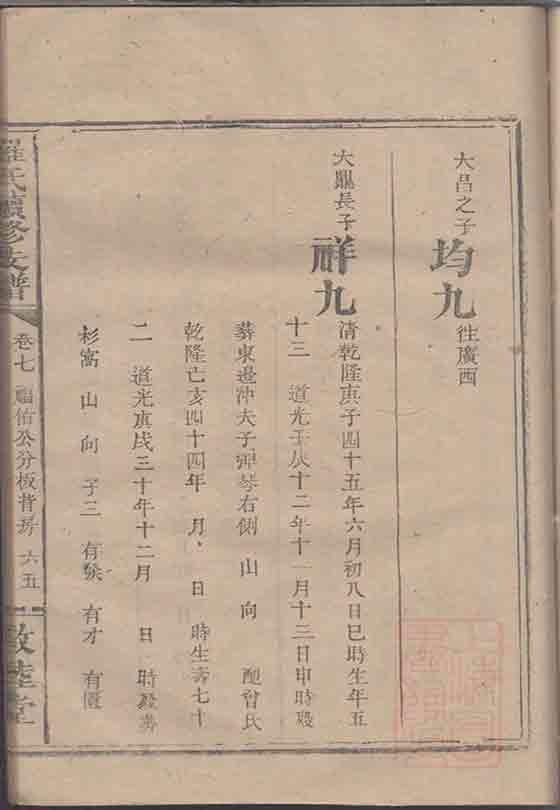 大昌之子
均九 往廣西
大鼎長子
祥九 清乾隆庚子四十五年六月初八日巳時生年五
十三 道光壬辰十二年十一月十三日申時歿
葬東邉冲夫子弹琴右側 山 向 配曾氏
乾隆亡亥四十四年 月 日 時生壽七十
二 道光庚戌三十年十二月 日 時歿壽
杉窩 山 向 子三 有 有才 有
羅氏續修支譜
卷七 福佑公分板背房 六五
敦睦堂